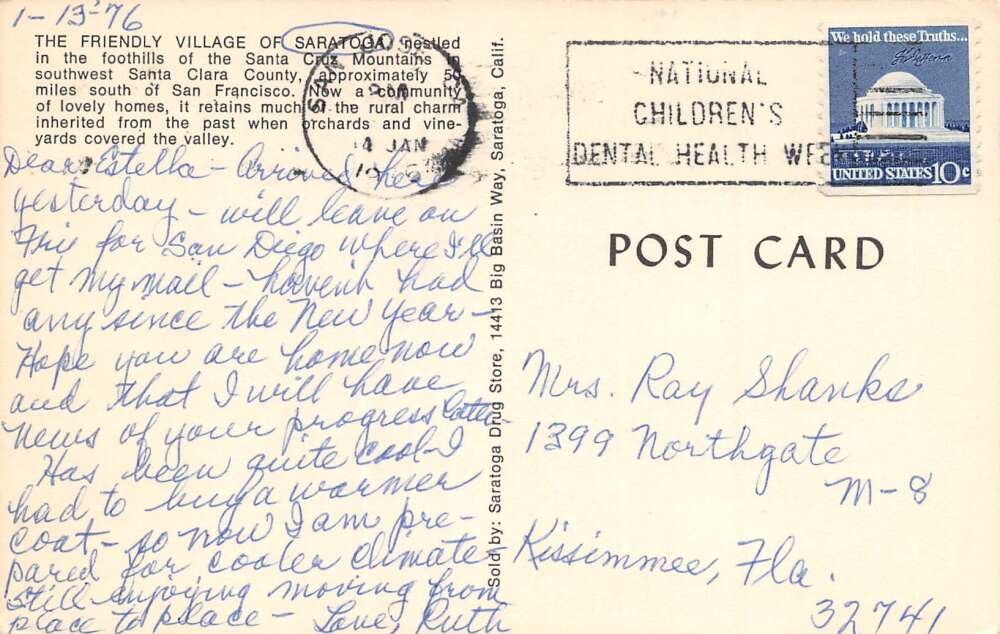 1-13-76
THE FRIENDLY VILLAGE OF SARATOGA, nestled
in the foothills of the Santa Cruz Mountains in
southwest Santa Clara County, approximately 50
miles south of San Francisco. Now a community
of lovely homes, it retains much of the rural charm
inherited from the past when orchards and vine-
yards covered the valley.
Dear Estella - Arrived here
yesterday - will leave on
Fri for San Diego where I'll
get my mail - haven't had
any since the New Year -
Hope you are home now
and that I will have
news of your progress later -
Has been quite cool - I
had to buy a warmer
coat - so now I am pre-
pared for cooler climate -
Still enjoying moving from
place to place - Love, Ruth
Sold by: Saratoga Drug Store, 14413 Big Basin Way, Saratoga, Calif.
SAN JOSE
14 JAN
NATIONAL
CHILDREN'S
DENTAL HEALTH WEEK
We hold these Truths...
UNITED STATES 10c
POST CARD
Mrs. Ray Shanks
1399 Northgate
M-8
Kissimmee, Fla.
32741